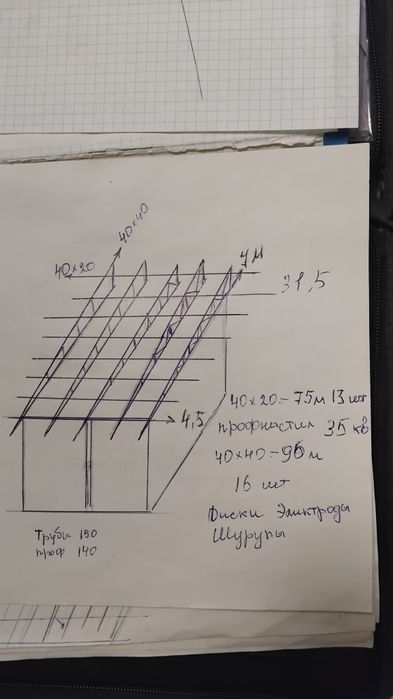 40×40
40×20
7м
31,5
4,5
40×20 = 75м 13 шт
профнастил 35 кв
40×40 = 96 м
16 шт
Диски Электроды
Шурупы
Трубы 190
проф 140